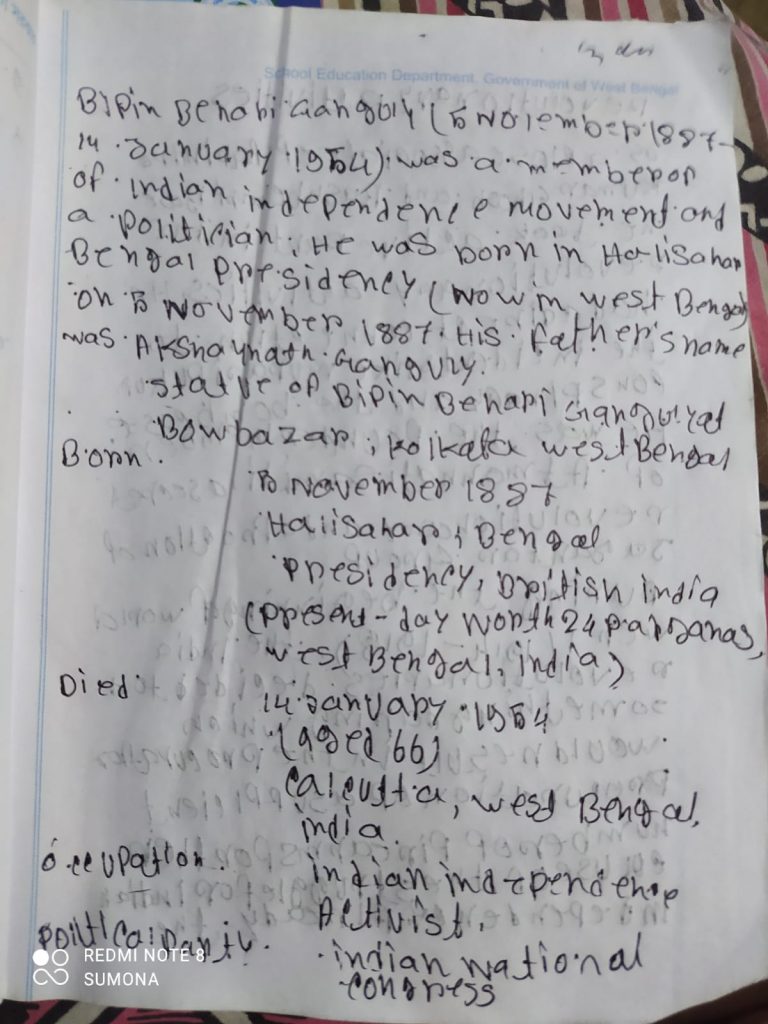 School Education Department, Government of West Bengal
Bipin Behari Ganguly (5 November 1887-
14 January 1954) was a member of
of Indian independence movement and
a politician. He was born in Halisahar
Bengal presidency (now in west Bengal)
on 5 November 1887. His father's name
was Akshaynath Ganguly.
statue of Bipin Behari Ganguly at
Bowbazar, Kolkata west Bengal
Born.
5 November 1887
Halisahar, Bengal
Presidency, British india
(present-day North 24 parganas,
west Bengal, india)
Died
14 January 1954
(aged 66)
Calcutta, west Bengal,
india.
occupation.
indian independence
Activist,
political party.
indian National
congress
REDMI NOTE 8
SUMONA